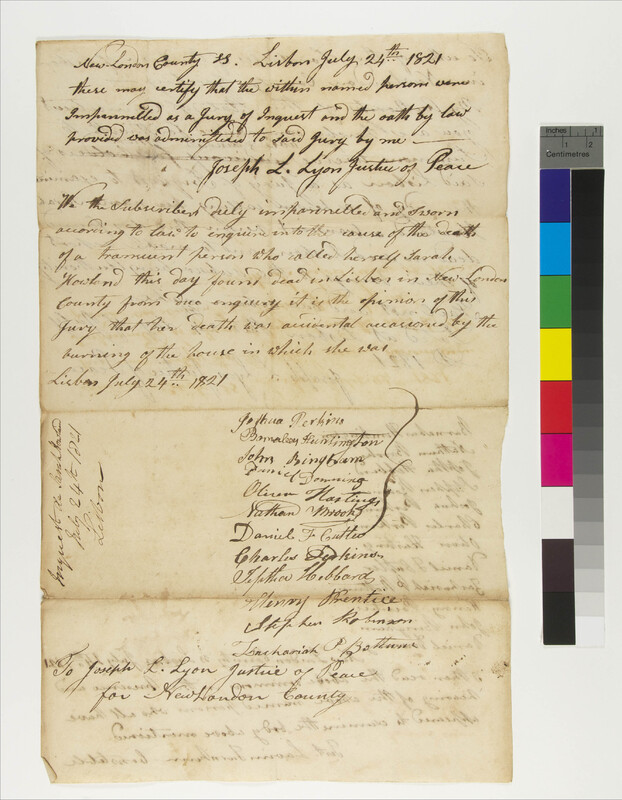 New-London County SS. Lisbon July 24th 1821
these may certify that the within named persons were
Impannelled as a Jury of Inquest and the oath by law
provided was administered to said Jury by me —
Joseph L. Lyon Justice of Peace
We the Subscribers duly impannelled and sworn
according to law to enquire into the cause of the death
of a transient person who called herself Sarah
Howland this day found dead in Lisbon in New-London
County from due enquiry it is the opinion of this
Jury that her death was accidental occasioned by the
burning of the house in which she was
Lisbon July 24th 1821
Joshua Perkins
Barnabas Huntington
John Bingham
Daniel Downing
Oliver Hastings
Nathan Brooks
Daniel F Cutler
Charles Perkins
Jeptha Hebbard
Henry Prentice
Stephen Robinson
Zachariah P
To Joseph L. Lyon Justice of Peace
for New London County
Inquest on
July 24th 1821
Lisbon
Inches
1
2
Centimetres